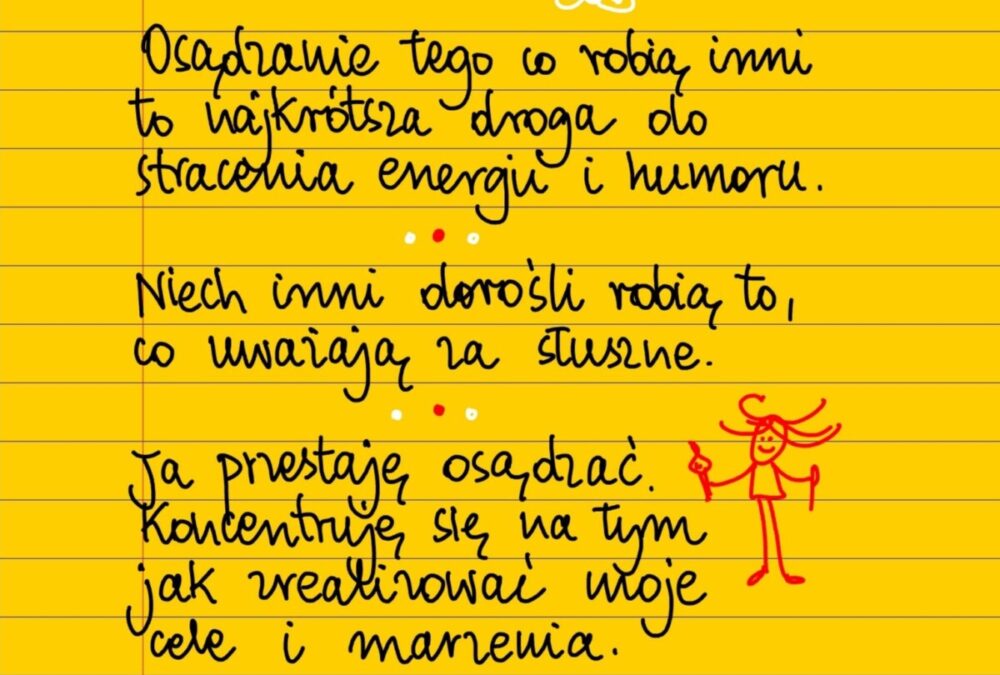 Osądzanie tego co robią inni
to najkrótsza droga do
stracenia energii i humoru.
Niech inni dorośli robią to,
co uważają za słuszne.
Ja przestaję osądzać.
Koncentruję się na tym
jak zrealizować moje
cele i marzenia.